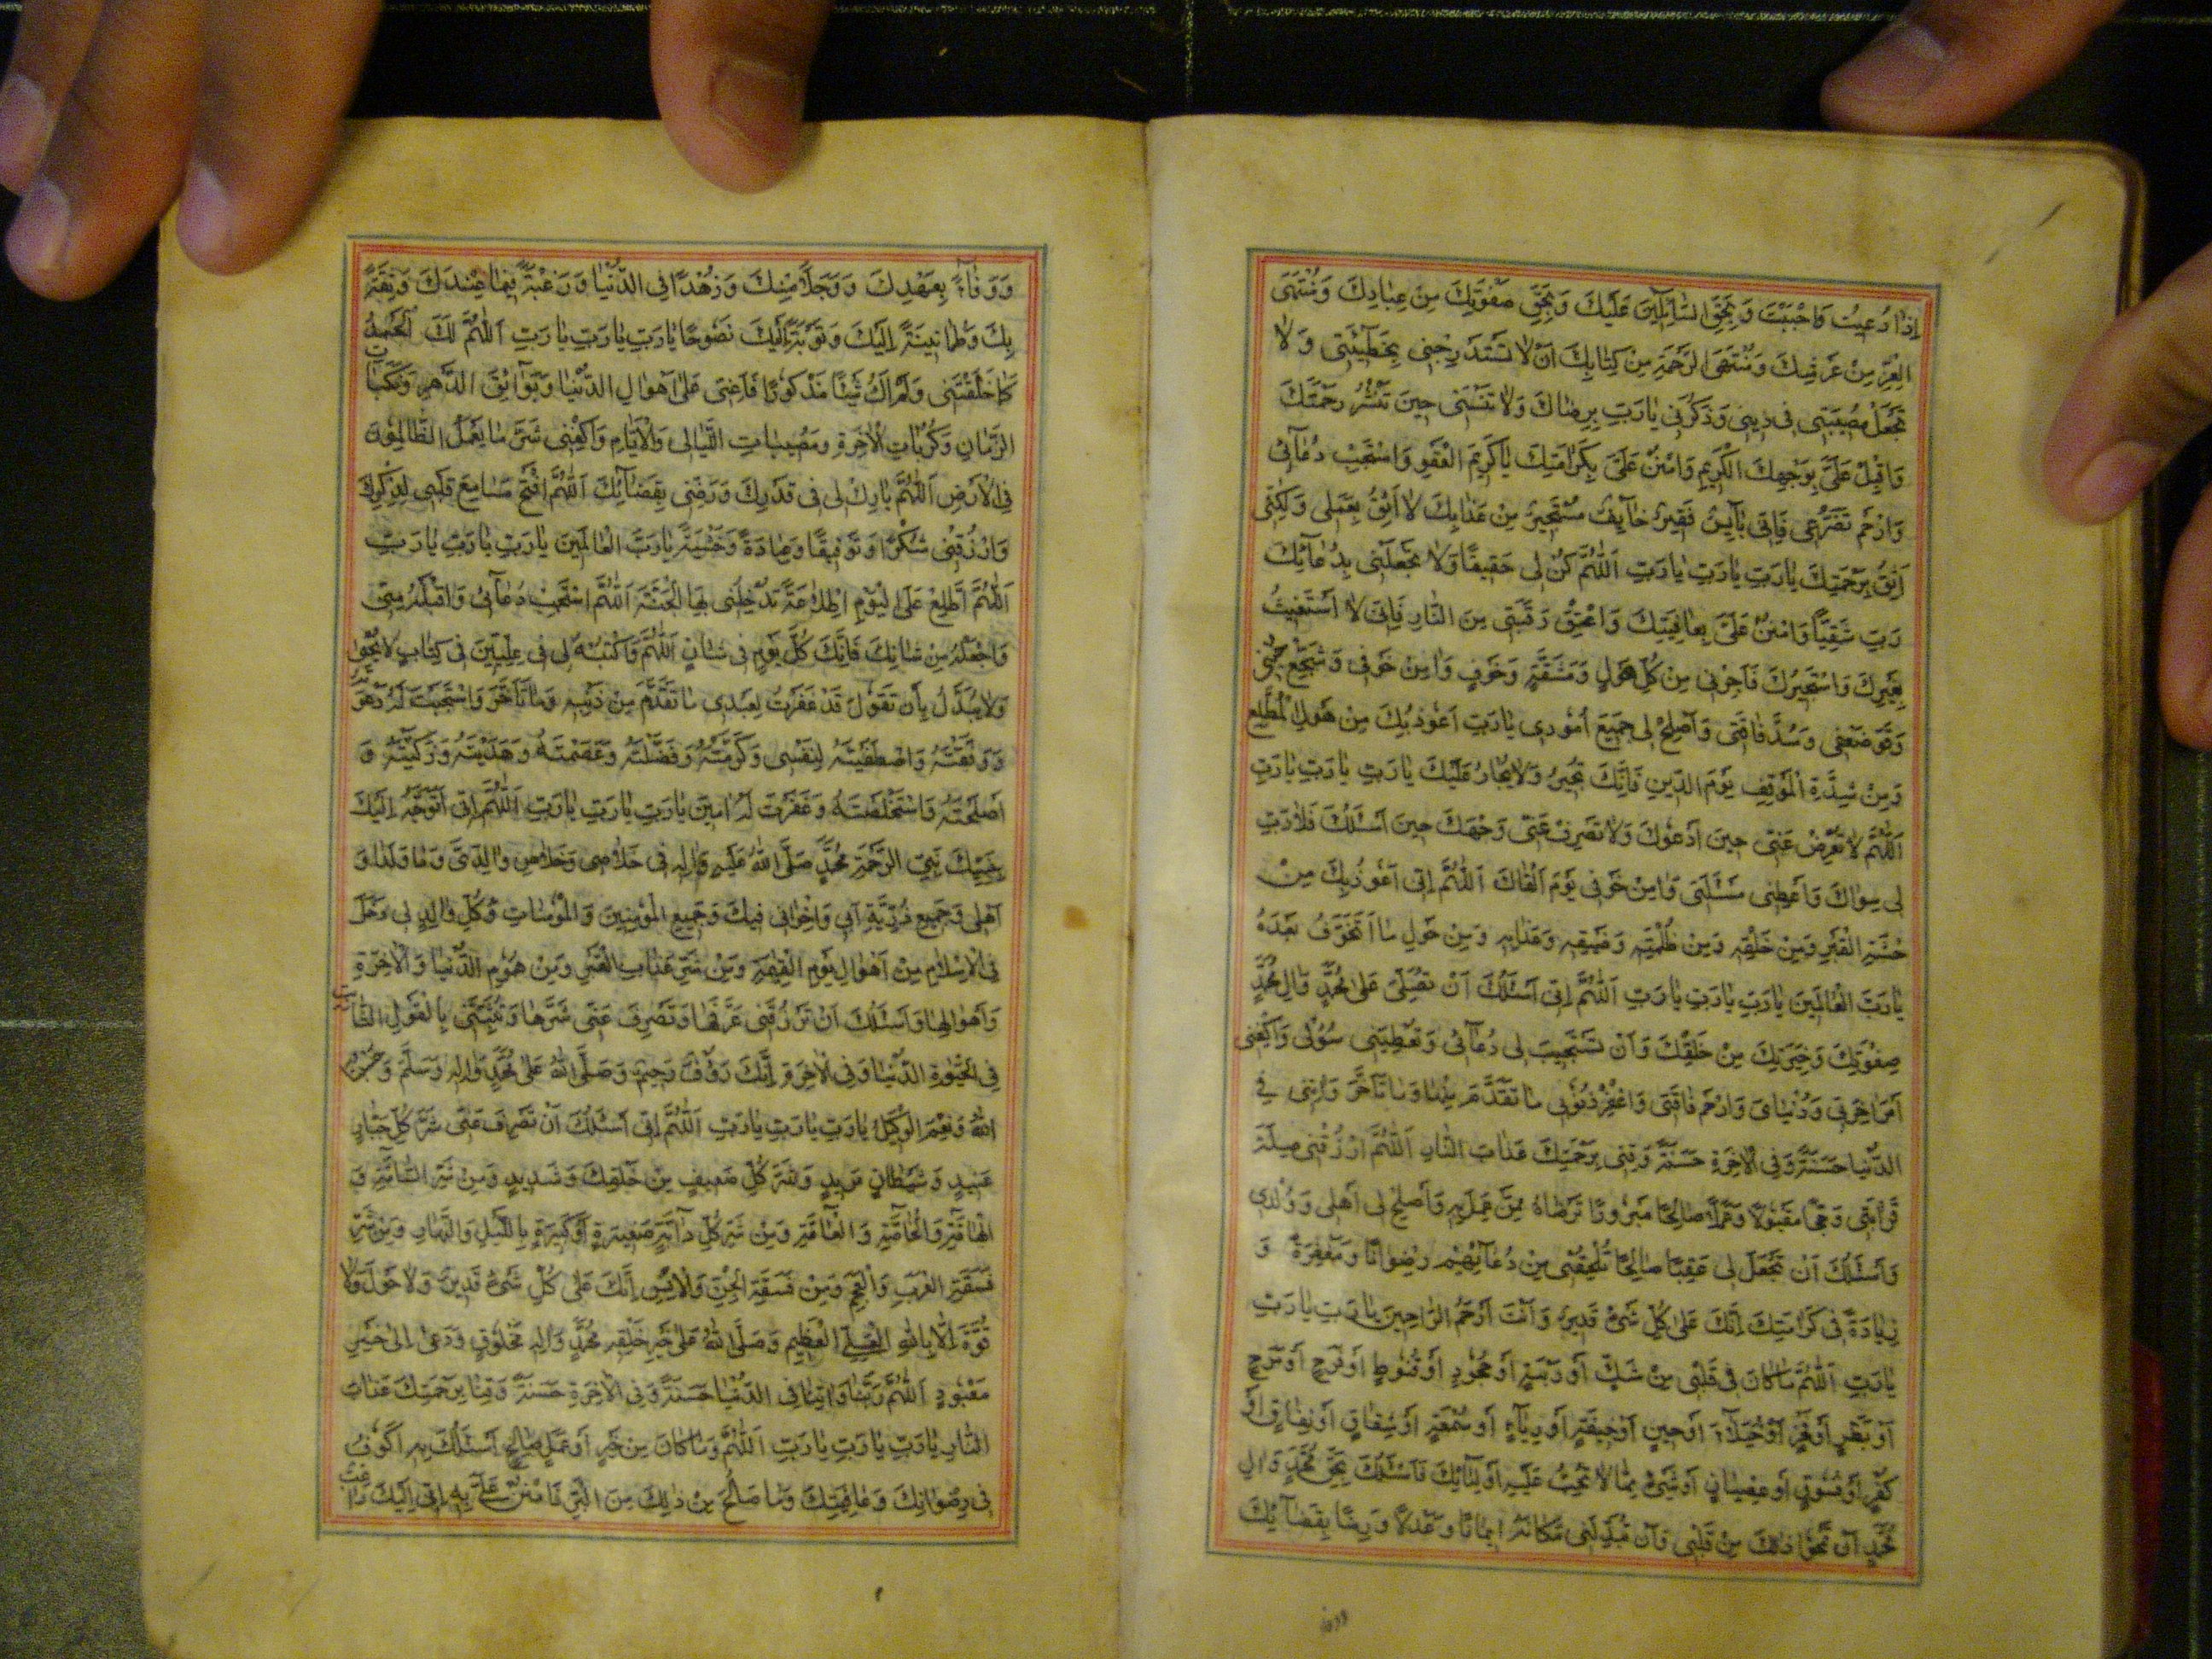 إِذَا دُعِيتَ وَاَجَبْتَ وَبِحَقِّ السَّآئِلِينَ عَلَيْكَ وَبِحَقِّ صَفْوَتِكَ مِنْ عِبَادِكَ وَمُنْتَهَى
الْعِزِّ مِنْ عَرْشِكَ وَمُنْتَهَى الرَّحْمَةِ مِنْ كِتَابِكَ اَنْ لَا تَسْتَدْرِجَنِى بِخَطِيئَتِى وَلَا
تَجْعَلْ مُصِيبَتِى فِى دِينِى وَذَكِّرْنِى يَارَبِّ بِرِضَاكَ وَلَا تَنْسَنِى حِينَ تَنْشُرُ رَحْمَتَكَ
وَاَقْبِلْ عَلَىَّ بِوَجْهِكَ الْكَرِيمِ وَامْنُنْ عَلَىَّ بِكَرَامَتِكَ يَاكَرِيمَ الْعَفْوِ وَاسْتَجِبْ دُعَآئِى
وَارْحَمْ تَضَرُّعِى فَاِنِّى بَآئِسٌ فَقِيرٌ خَآئِفٌ مُسْتَجِيرٌ مِنْ عَذَابِكَ لَا اَثِقُ بِعَمَلِى وَلٰكِنِّى
اَثِقُ بِرَحْمَتِكَ يَارَبِّ يَارَبِّ يَارَبِّ اَللّٰهُمَّ كُنْ لِى حَفِيًّا وَلَا تَجْعَلْنِى بِدُعَآئِكَ
رَبِّ شَقِيًّا وَامْنُنْ عَلَىَّ بِعَافِيَتِكَ وَاَعْتِقْ رَقَبَتِى مِنَ النَّارِ فَاِنِّى لَا اَسْتَغِيثُ
بِغَيْرِكَ وَاَسْتَجِيرُكَ فَاَجِرْنِى مِنْ كُلِّ هَوْلٍ وَمَشَقَّةٍ وَخَوْفٍ وَاٰمِنْ خَوْفِى وَشَجِّعْ جُبْنِى
وَقَوِّ ضَعْفِى وَسُدَّ فَاقَتِى وَاَصْلِحْ لِى جَمِيعَ اُمُورِى يَارَبِّ اَعُوذُبِكَ مِنْ هَوْلِ الْمُطَّلَعِ
وَمِنْ شِدَّةِ الْمَوْقِفِ يَوْمَ الدِّينِ فَاِنَّكَ تُجِيرُ وَلَا يُجَارُ عَلَيْكَ يَارَبِّ يَارَبِّ يَارَبِّ
اَللّٰهُمَّ لَا تُعْرِضْ عَنِّى حِينَ اَدْعُوكَ وَلَا تَصْرِفْ عَنِّى وَجْهَكَ حِينَ اَسْئَلُكَ فَلَا رَبَّ
لِى سِوَاكَ وَاَعْطِنِى مَسْئَلَتِى وَاٰمِنْ خَوْفِى يَوْمَ اَلْقَاكَ اَللّٰهُمَّ اِنِّى اَعُوذُبِكَ مِنْ
الْقَبْرِ وَمِنْ وَمِنْ ظُلْمَتِهِ وَضِيقِهِ وَعَذَابِهِ وَمِنْ هَوْلِ مَا اَتَخَوَّفُ بَعْدَهُ
يَارَبَّ الْعَالَمِينَ يَارَبِّ يَارَبِّ يَارَبِّ اَللّٰهُمَّ اِنِّى اَسْئَلُكَ اَنْ تُصَلِّىَ عَلٰى مُحَمَّدٍ وَاٰلِ مُحَمَّدٍ
صِفْوَتِكَ وَخِيَرَتِكَ مِنْ خَلْقِكَ وَاَنْ تَسْتَجِيبَ لِى دُعَآئِى وَتُعْطِيَنِى سُؤْلِى وَاكْفِنِى
اَمْرَ اٰخِرَتِى وَدُنْيَاىَ وَارْحَمْ فَاقَتِى وَاغْفِرْ ذُنُوبِى مَا تَقَدَّمَ مِنْهَا وَمَا تَاَخَّرَ وَاٰتِنِى فِى
الدُّنْيَا حَسَنَةً وَفِى الْاٰخِرَةِ حَسَنَةً وَقِنِى بِرَحْمَتِكَ عَذَابَ النَّارِ اَللّٰهُمَّ ارْزُقْنِى صِلَةَ
قَرَابَتِى وَحَجًّا مَقْبُولًا وَعَمَلًا صَالِحًا مَبْرُورًا تَرْضَاهُ مِمَّنْ عَمِلَ بِهِ وَاَصْلِحْ لِى اَهْلِى وَوُلْدِى
وَاَسْئَلُكَ اَنْ تَجْعَلَ لِى عَقِبًا صَالِحًا تُلْحِقُنِى مِنْ دُعَآئِهِمْ رِضْوَانًا وَمَغْفِرَةً وَ
زِيَادَةً فِى كَرَامَتِكَ اِنَّكَ عَلٰى كُلِّ شَىْءٍ قَدِيرٌ وَاَنْتَ اَرْحَمُ الرَّاحِمِينَ يَارَبِّ يَارَبِّ
يَارَبِّ اَللّٰهُمَّ مَا كَانَ فِى قَلْبِى مِنْ شَكٍّ اَوْ رِيبَةٍ اَوْ جُحُودٍ اَوْ قُنُوطٍ اَوْ فَرَحٍ اَوْ مَرَحٍ
اَوْ بَطَرٍ اَوْ فَخْرٍ اَوْ خُيَلَآءَ اَوْ اَوْ اَوْ رِيَآءٍ اَوْ سُمْعَةٍ اَوْ شِقَاقٍ اَوْ نِفَاقٍ اَوْ
كُفْرٍ اَوْ فُسُوقٍ اَوْ عِصْيَانٍ اَوْ شَىْءٍ مِمَّا لَا تُحِبُّ عَلَيْهِ اَوْلِيَآئَكَ فَاَسْئَلُكَ بِحَقِّ مُحَمَّدٍ وَاٰلِ
مُحَمَّدٍ اَنْ تَمْحُوَ ذٰلِكَ مِنْ قَلْبِى وَاَنْ تُبَدِّلَنِى مَكَانَهُ اِيمَانًا وَعَدْلًا وَرِضًا بِقَضَآئِكَ
وَوَفَآءً بِعَهْدِكَ وَوَجَلًا مِنْكَ وَزُهْدًا فِى الدُّنْيَا وَرَغْبَةً فِيمَا عِنْدَكَ وَثِقَةً
بِكَ وَطُمَانِينَةً اِلَيْكَ وَتَوْبَةً اِلَيْكَ نَصُوحًا يَارَبِّ يَارَبِّ يَارَبِّ اَللّٰهُمَّ لَكَ الْحَمْدُ
كَمَا خَلَقْتَنِى وَلَمْ اَكُ شَيْئًا مَذْكُورًا فَاَعِنِّى عَلٰى اَهْوَالِ الدُّنْيَا وَبَوَآئِقِ الدَّهْرِ وَنَكَبَاتِ
الزَّمَانِ وَكُرُبَاتِ الْاٰخِرَةِ وَمُصِيبَاتِ اللَّيَالِى وَالْاَيَّامِ وَاكْفِنِى شَرَّ مَا يَعْمَلُ الظَّالِمُونَ
فِى الْاَرْضِ اَللّٰهُمَّ بَارِكْ لِى فِى قَدَرِكَ وَرَضِّنِى بِقَضَآئِكَ اَللّٰهُمَّ افْتَحْ مَسَامِعَ قَلْبِى لِذِكْرِكَ
وَارْزُقْنِى شُكْرًا وَتَوْفِيقًا وَعِبَادَةً وَخَشْيَةً يَارَبَّ الْعَالَمِينَ يَارَبِّ يَارَبِّ يَارَبِّ
اَللّٰهُمَّ اطَّلِعْ عَلَىَّ الْيَوْمَ اِطِّلَاعَةً تُدْخِلُنِى بِهَا الْجَنَّةَ اَللّٰهُمَّ اسْتَجِبْ دُعَآئِى وَاقْبَلْهُ مِنِّى
وَاجْعَلْهُ مِنْ شَانِكَ فَاِنَّكَ كُلَّ يَوْمٍ فِى شَانٍ اَللّٰهُمَّ وَاكْتُبْهُ لِى فِى عِلِّيِّينَ فِى كِتَابٍ لَا يُمْحٰى
وَلَا يُبَدَّلُ بِاَنْ تَقُولَ قَدْ غَفَرْتُ لِعَبْدِى مَا تَقَدَّمَ مِنْ ذَنْبِهِ وَمَا تَاَخَّرَ وَاسْتَجَبْتُ لَهُ دَعْوَتَهُ
وَوَفَّقْتُهُ وَاصْطَفَيْتُهُ لِنَفْسِى وَكَرَّمْتُهُ وَفَضَّلْتُهُ وَعَصَمْتُهُ وَهَدَيْتُهُ وَزَكَّيْتُهُ وَ
اَصْلَحْتُهُ وَاسْتَخْلَصْتُهُ وَغَفَرْتُ لَهُ اٰمِينَ يَارَبِّ يَارَبِّ يَارَبِّ اَللّٰهُمَّ اِنِّى اَتَوَجَّهُ اِلَيْكَ
بِنَبِيِّكَ نَبِىِّ الرَّحْمَةِ مُحَمَّدٍ صَلَّى اللّٰهُ عَلَيْهِ وَاٰلِهِ فِى خَلَاصِى وَخَلَاصِ وَالِدَىَّ وَمَا وَلَدَا وَ
اَهْلِى وَجَمِيعِ ذُرِّيَّةِ اَبِى وَاِخْوَانِى فِيكَ وَجَمِيعِ الْمُؤْمِنِينَ وَالْمُؤْمِنَاتِ وَكُلِّ وَالِدٍ لِى دَخَلَ
فِى الْاِسْلَامِ مِنْ اَهْوَالِ يَوْمِ الْقِيٰمَةِ وَمِنْ شَرِّ عَذَابِ الْقَبْرِ وَمِنْ هُمُومِ الدُّنْيَا وَالْاٰخِرَةِ
وَاَهْوَالِهَا وَاَسْئَلُكَ اَنْ تَرْزُقَنِى عِزَّهَا وَتَصْرِفَ عَنِّى شَرَّهَا وَتُثَبِّتَنِى بِالْقَوْلِ الثَّابِتِ
فِى الْحَيٰوةِ الدُّنْيَا وَفِى الْاٰخِرَةِ اِنَّكَ رَؤُفٌ رَحِيمٌ وَصَلَّى اللّٰهُ عَلٰى مُحَمَّدٍ وَاٰلِهِ وَسَلَّمَ وَحَسْبُنَا
اللّٰهُ وَنِعْمَ الْوَكِيلُ يَارَبِّ يَارَبِّ يَارَبِّ اَللّٰهُمَّ اِنِّى اَسْئَلُكَ اَنْ تَصْرِفَ عَنِّى شَرَّ كُلِّ جَبَّارٍ
عَنِيدٍ وَشَيْطَانٍ مَرِيدٍ وَشَرَّ كُلِّ ضَعِيفٍ مِنْ خَلْقِكَ وَشَدِيدٍ وَمِنْ شَرِّ السَّآمَّةِ وَ
الْهَآمَّةِ وَالْخَآصَّةِ وَالْعَآمَّةِ وَمِنْ شَرِّ كُلِّ دَآبَّةٍ صَغِيرَةٍ اَوْ كَبِيرَةٍ بِاللَّيْلِ وَالنَّهَارِ وَمِنْ شَرِّ
فَسَقَةِ الْعَرَبِ وَالْعَجَمِ وَمِنْ فَسَقَةِ الْجِنِّ وَالْاِنْسِ اِنَّكَ عَلٰى كُلِّ شَىْءٍ قَدِيرٌ وَلَا حَوْلَ وَلَا
قُوَّةَ اِلَّا بِاللّٰهِ الْعَلِىِّ الْعَظِيمِ وَصَلَّى اللّٰهُ عَلٰى خَيْرِ خَلْقِهِ مُحَمَّدٍ وَاٰلِهِ مَخْلُوقٍ وَدَعٰى اِلٰى خَيْرِ
مَعْبُودٍ اَللّٰهُمَّ رَبَّنَا وَاٰتِنَا فِى الدُّنْيَا حَسَنَةً وَفِى الْاٰخِرَةِ حَسَنَةً وَقِنَا بِرَحْمَتِكَ عَذَابَ
النَّارِ يَارَبِّ يَارَبِّ يَارَبِّ اَللّٰهُمَّ وَمَا كَانَ مِنْ خَيْرٍ اَوْ عَمَلٍ صَالِحٍ اَسْئَلُكَ بِهِ اَكُونُ
فِى رِضْوَانِكَ وَعَافِيَتِكَ وَمَا صَالَحَ مِنْ ذٰلِكَ مِنَ الْبِرِّ فَامْنُنْ عَلَىَّ بِهِ اِنِّى اِلَيْكَ رَاغِبٌ